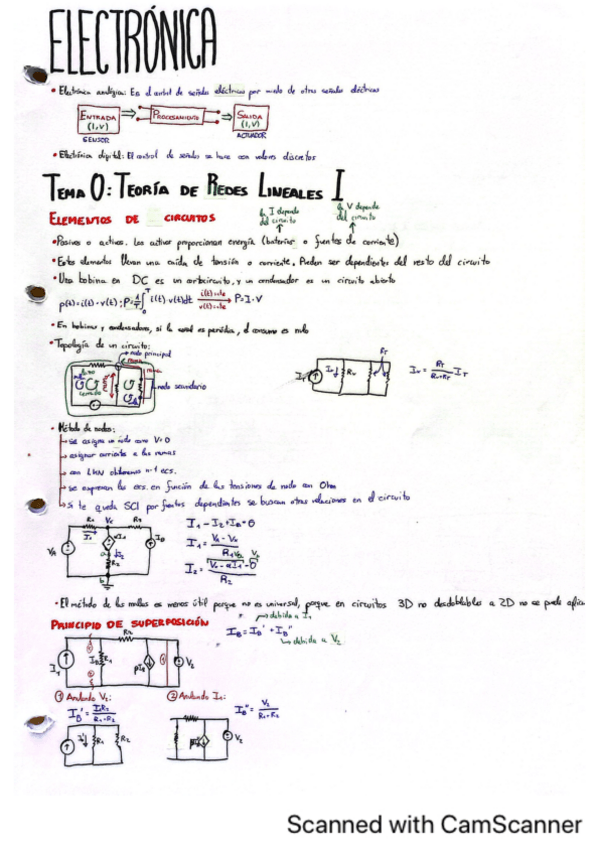 ELECTRÓNICA
• Electrónica analógica: Es el control de señales eléctricas por medio de otras señales eléctricas
ENTRADA (I,V) ⇒ PROCESAMIENTO ⇒ SALIDA (I,V)
SENSOR ACTUADOR
• Electrónica digital: El control de señales se hace con valores discretos
TEMA 0: TEORÍA DE REDES LINEALES I
ELEMENTOS DE CIRCUITOS
la I depende del circuito
la V depende del circuito
• Pasivos o activos. Los activos proporcionan energía (baterías o fuentes de corriente)
• Estos elementos llevan una caída de tensión o corriente. Pueden ser dependientes del resto del circuito
• Una bobina en DC es un cortocircuito, y un condensador es un circuito abierto
p(t)=i(t)·v(t); P=1/T ∫₀ᵀ i(t)·v(t)dt i(t)=cte v(t)=cte → P=I·V
• En bobinas y condensadores, si la señal es periódica, el consumo es nulo
• Topología de un circuito:
nodo principal
rama
nodo secundario
• Método de nodos:
→ se asigna un nodo como V=0
→ asignar corriente a las ramas
→ con LKN obtenemos n-1 ecs.
→ se expresan las ecs. en función de las tensiones de nodo con Ohm
→ Si te queda SCI por fuentes dependientes se buscan otras relaciones en el circuito
I₁-I₂+I_B=0
• El método de las mallas es menos útil porque no es universal, porque en circuitos 3D no desdoblables a 2D no se puede
PRINCIPIO DE SUPERPOSICIÓN
debida a I₁
I_B=I_B'+I_B''
debida a V₂
① Anulando V₂:
② Anulando I₁:
Scanned with CamScanner